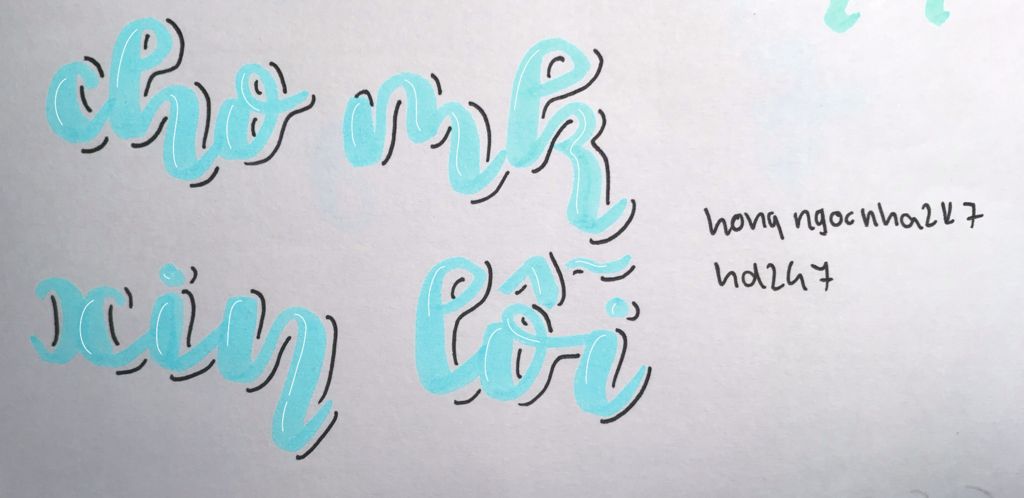 cho mk
xin lỗi
hongngocnha2k7
hd247